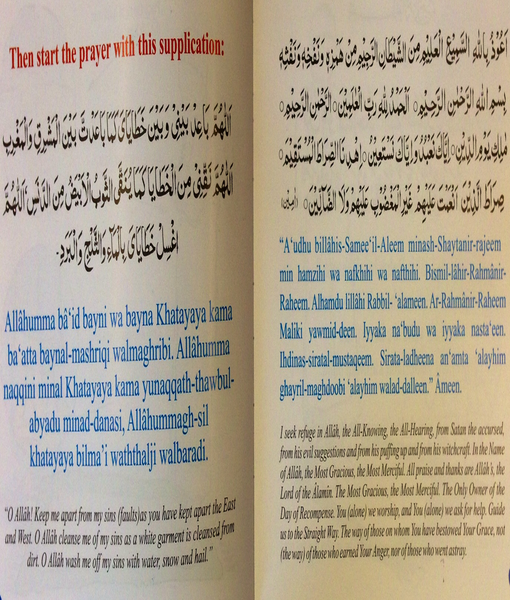 Then start the prayer with this supplication:
اَللّٰهُمَّ بَاعِدْ بَيْنِيْ وَبَيْنَ خَطَايَايَ كَمَا بَاعَدْتَّ بَيْنَ الْمَشْرِقِ وَالْمَغْرِبِ
اَللّٰهُمَّ نَقِّنِيْ مِنَ الْخَطَايَا كَمَا يُنَقَّى الثَّوْبُ الْاَبْيَضُ مِنَ الدَّنَسِ اَللّٰهُمَّ
اغْسِلْ خَطَايَايَ بِالْمَآءِ وَالثَّلْجِ وَالْبَرَدِ-
Allâhumma bâ‘id bayni wa bayna Khatayaya kama
ba‘atta baynal-mashriqi walmaghribi. Allâhumma
naqqini minal Khatayaya kama yunaqqath-thawbul-
abyadu minad-danasi, Allâhummagh-sil
khatayaya bilma’i waththalji walbaradi.
“O Allâh! Keep me apart from my sins (faults)as you have kept apart the East
and West. O Allâh cleanse me of my sins as a white garment is cleansed from
dirt. O Allâh wash me off my sins with water, snow and hail.”
اَعُوْذُ بِاللّٰهِ السَّمِيْعِ الْعَلِيْمِ مِنَ الشَّيْطَانِ الرَّجِيْمِ مِنْ هَمْزِهٖ وَنَفْخِهٖ وَنَفْثِهٖ
بِسْمِ اللّٰهِ الرَّحْمٰنِ الرَّحِيْمِ○ اَلْحَمْدُ لِلّٰهِ رَبِّ الْعٰلَمِيْنَ○ الرَّحْمٰنِ الرَّحِيْمِ○
مٰلِكِ يَوْمِ الدِّيْنِ○ اِيَّاكَ نَعْبُدُ وَاِيَّاكَ نَسْتَعِيْنُ○ اِهْدِنَا الصِّرَاطَ الْمُسْتَقِيْمَ○
صِرَاطَ الَّذِيْنَ اَنْعَمْتَ عَلَيْهِمْ غَيْرِ الْمَغْضُوْبِ عَلَيْهِمْ وَلَا الضَّآلِّيْنَ○ (اٰمِيْن)
“A‘udhu billâhis-Samee‘il-Aleem minash-Shaytanir-rajeem
min hamzihi wa nafkhihi wa nafthihi. Bismil-lâhir-Rahmânir-
Raheem. Alhamdu lillâhi Rabbil- ‘alameen. Ar-Rahmânir-Raheem
Maliki yawmid-deen. Iyyaka na‘budu wa iyyaka nasta‘een.
Ihdinas-siratal-mustaqeem. Sirata-ladheena an‘amta ‘alayhim
ghayril-maghdoobi ‘alayhim walad-dalleen.” Âmeen.
I seek refuge in Allâh, the All-Knowing, the All-Hearing, from Satan the accursed,
from his evil suggestions and from his puffing up and from his witchcraft. In the Name
of Allâh, the Most Gracious, the Most Merciful. All praise and thanks are Allâh’s, the
Lord of the Alamin. The Most Gracious, the Most Merciful. The Only Owner of the
Day of Recompense. You (alone) we worship, and You (alone) we ask for help. Guide
us to the Straight Way. The way of those on whom You have bestowed Your Grace, not
(the way) of those who earned Your Anger, nor of those who went astray.